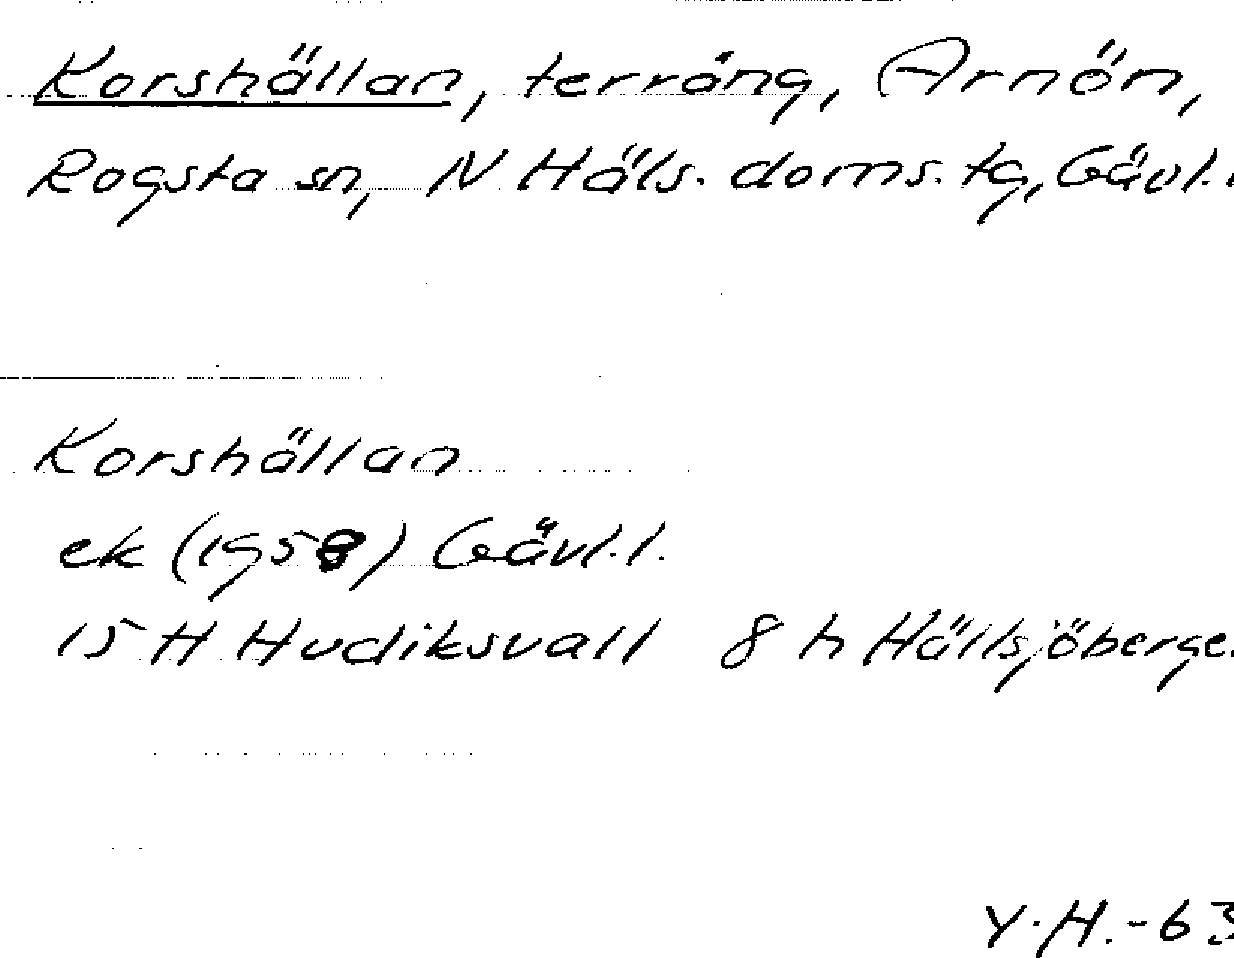 Korshällan, terräng, Arnön,
Rogsta sn, N Häls. doms. tg, Gävl. l
Korshällan
ek (1958) Gävl. l.
15 H Hudiksvall 8 h Hällsjöberge
Y. H. - 63